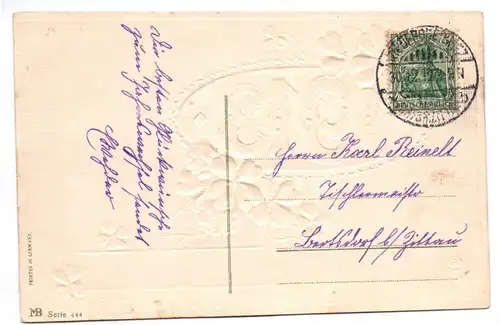 Die besten Glückwünsche
zum Jahreswechsel sendet
Herrn Karl Reinelt
Tischlermeister
Bertsdorf b/ Zittau
PRINTED IN GERMANY.
MB Serie 444